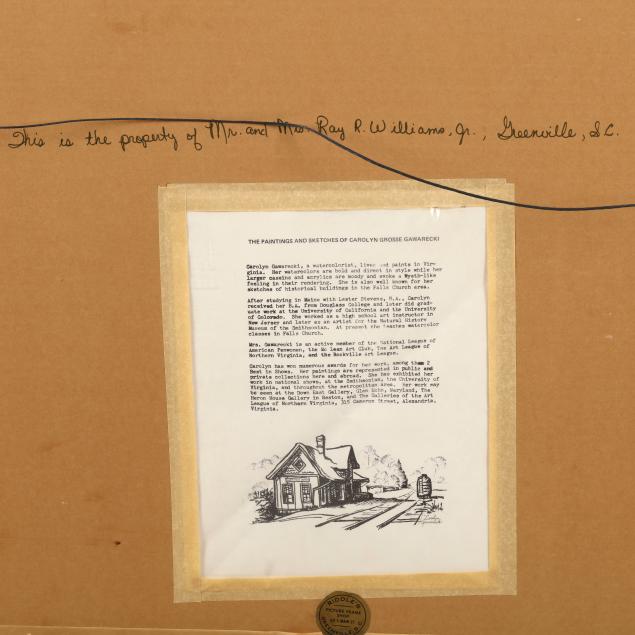 This is the property of Mr. and Mrs. Ray R. Williams, Jr., Greenville, S.C.
THE PAINTINGS AND SKETCHES OF CAROLYN GROSSE GAWARECKI
Carolyn Gawarecki, a watercolorist, lives and paints in Vir-
ginia. Her watercolors are bold and direct in style while her
larger caseins and acrylics are moody and evoke a Wyeth-like
feeling in their rendering. She is also well known for her
sketches of historical buildings in the Falls Church area.
After studying in Maine with Lester Stevens, N.A., Carolyn
received her B.A. from Douglass College and later did grad-
uate work at the University of California and the University
of Colorado. She worked as a high school art instructor in
New Jersey and later as an Artist for the Natural History
Museum of the Smithsonian. At present she teaches watercolor
classes in Falls Church.
Mrs. Gawarecki is an active member of the National League of
American Penwomen, the Mc Lean Art Club, The Art League of
Northern Virginia, and the Rockville Art League.
Carolyn has won numerous awards for her work, among them 2
Best in Shows. Her paintings are represented in public and
private collections here and abroad. She has exhibited her
work in national shows, at the Smithsonian, the University of
Virginia, and throughout the metropolitan area. Her work may
be seen at the Down East Gallery, Glen Echo, Maryland, The
Heron House Gallery in Reston, and The Galleries of the Art
League of Northern Virginia, 315 Cameron Street, Alexandria,
Virginia.
RIDDLE'S
PICTURE FRAME
SHOP